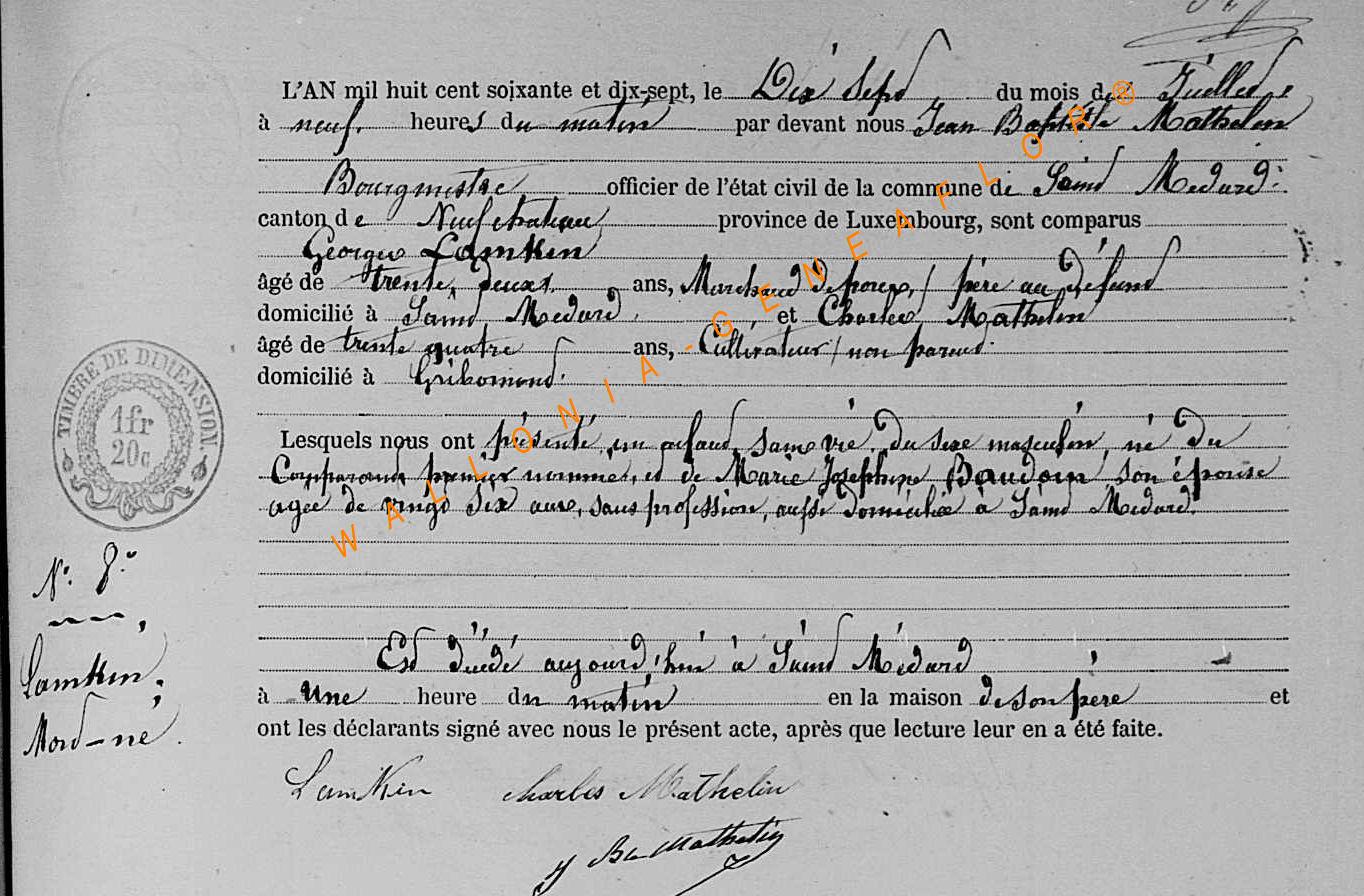 L'AN mil huit cent soixante et dix-sept, le Dix Sept du mois de Juillet
à neuf heures du matin par devant nous Jean Baptiste Mathelin
Bourgmestre officier de l'état civil de la commune de Saint Medard
canton de Neufchateau province de Luxembourg, sont comparus
Georges Lamkin
âgé de trente deux ans, Marchand de porcs, père au défunt
domicilié à Saint Medard, et Charles Mathelin
âgé de trente quatre ans, Cultivateur, non parent
domicilié à Gribomont.
Lesquels nous ont présenté un enfant sans vie, du sexe masculin, né du
Comparant premier nommé, et de Marie Josephine Baudoin son épouse
agée de vingt six ans, sans profession, aussi domiciliée à Saint Medard.
Est décédé aujourd'hui à Saint Médard
à une heure du matin en la maison de son père et
ont les déclarants signé avec nous le présent acte, après que lecture leur en a été faite.
LamKin Charles Mathelin
J Bte Mathelin
TIMBRE DE DIMENSION.
1fr
20c
N° 8
Lamkin
Mort-né.
WALLONIA-GENEAFLOR®